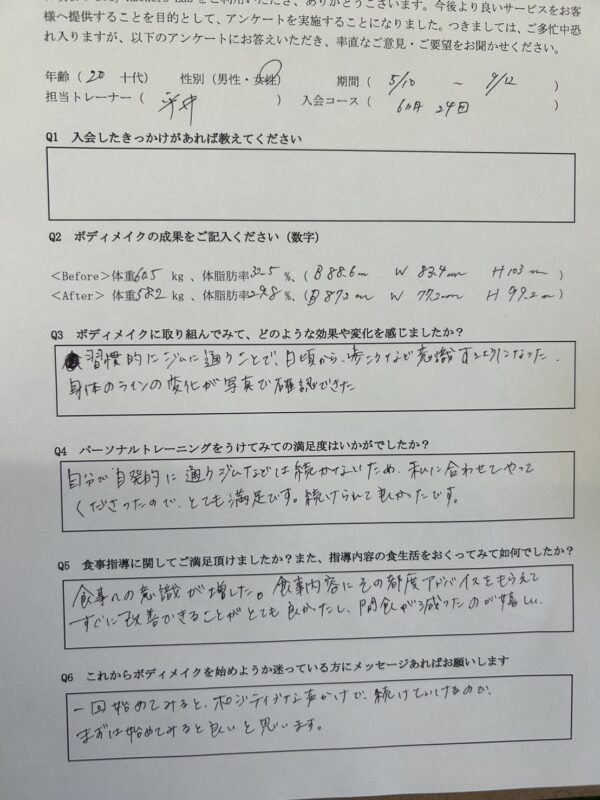 をご利用いただき、ありがとうございます。今後より良いサービスをお客
様へ提供することを目的として、アンケートを実施することになりました。つきましては、ご多忙中恐
れ入りますが、以下のアンケートにお答えいただき、率直なご意見・ご要望をお聞かせください。
年齢( 20 十代) 性別(男性・女性) 期間( 5/10 ~ 9/12 )
担当トレーナー( 平井 ) 入会コース( 6カ月 24回 )
Q1 入会したきっかけがあれば教えてください
Q2 ボディメイクの成果をご記入ください(数字)
<Before>体重60.5 kg、体脂肪率32.5%、(B 88.6cm W 83.4cm H 103cm)
<After>体重58.2 kg、体脂肪率29.8%、(B 87.2cm W 77.2cm H 99.2cm)
Q3 ボディメイクに取り組んでみて、どのような効果や変化を感じましたか?
習慣的にジムに通うことで、日頃から、歩こうなど意識するようになった.
身体のラインの変化が写真で確認できた
Q4 パーソナルトレーニングをうけてみての満足度はいかがでしたか?
自分で自発的に通うジムなどは続かないため、私に合わせてやって
くださったので、とても満足です。続けられて良かったです。
Q5 食事指導に関してご満足頂けましたか?また、指導内容の食生活をおくってみて如何でしたか?
食事への意識が増した。食事内容にその都度アドバイスをもらえて
すぐに改善できることがとても良かったし、間食が減ったのが嬉しい.
Q6 これからボディメイクを始めようか迷っている方にメッセージあればお願いします
一回始めてみると、ポジティブな声かけで、続けていけるので、
まずは始めてみると良いと思います。